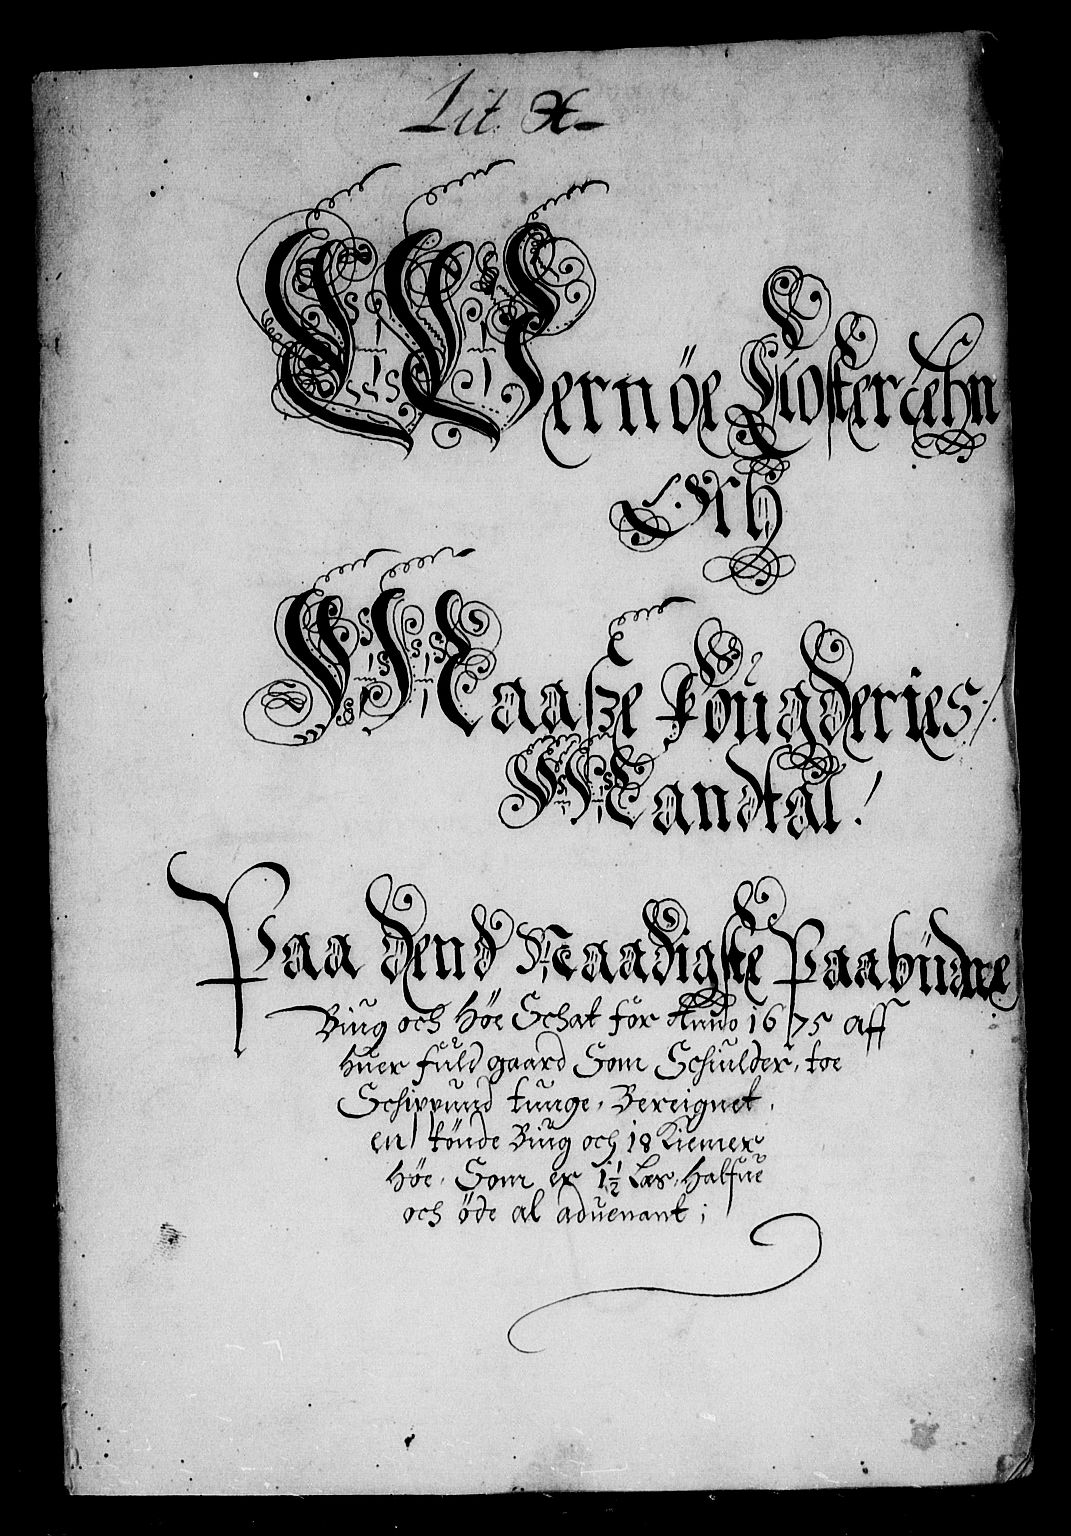 Lit. X.
Wernöe Kloster Lehn
Och
Maasze Fougderies
Mandtal!
Paa dend Naadigste Paabudne
Biug och Höe Schat for Anno 1675 aff
huer fuld gaard Som Schiulder, toe
Schippund tunge, Bereignet,
en tönde Biug och 18 Kiemer
Höe, Som er 1½ Læs, Halfue
och öde al aduenant;